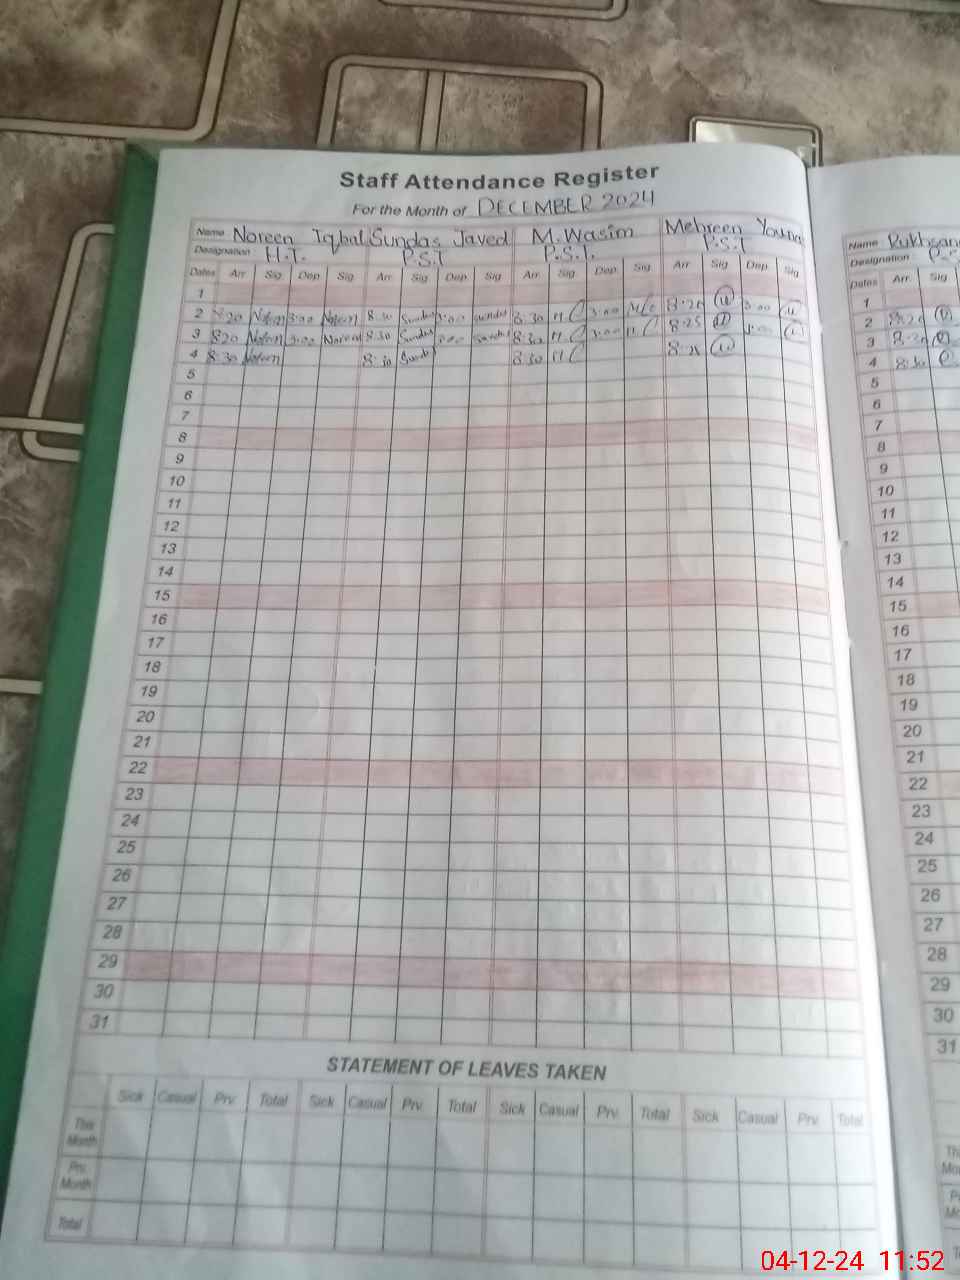 Staff Attendance Register
For the Month of DECEMBER 2024
Name Noreen Iqbal Sundas Javed M. Wasim Mehreen Younas
Designation H.T. P.S.T P.S.T. P.S.T
Dates Arr Sig Dep Sig Arr Sig Dep Sig Arr Sig Dep Sig Arr Sig Dep Sig
1
2 8:20 Noreen 3:00 Noreen 8:30 Sundas 3:00 Sundas 8:30 3:00 8:20 3:00
3 8:20 Noreen 3:00 Noreen 8:30 Sundas 3:00 Sundas 8:30 3:00 8:25 3:00
4 8:30 Noreen 8:30 Sundas 8:30 8:25
5
6
7
8
9
10
11
12
13
14
15
16
17
18
19
20
21
22
23
24
25
26
27
28
29
30
31
STATEMENT OF LEAVES TAKEN
Sick Casual Prv. Total Sick Casual Prv. Total Sick Casual Prv. Total Sick Casual Prv. Total
This Month
Prv. Month
Total
Name Rukhsana
Designation P.S
Dates Arr Sig
1
2 8:20
3 8:30
4 8:30
5
6
7
8
9
10
11
12
13
14
15
16
17
18
19
20
21
22
23
24
25
26
27
28
29
30
31
04-12-24 11:52